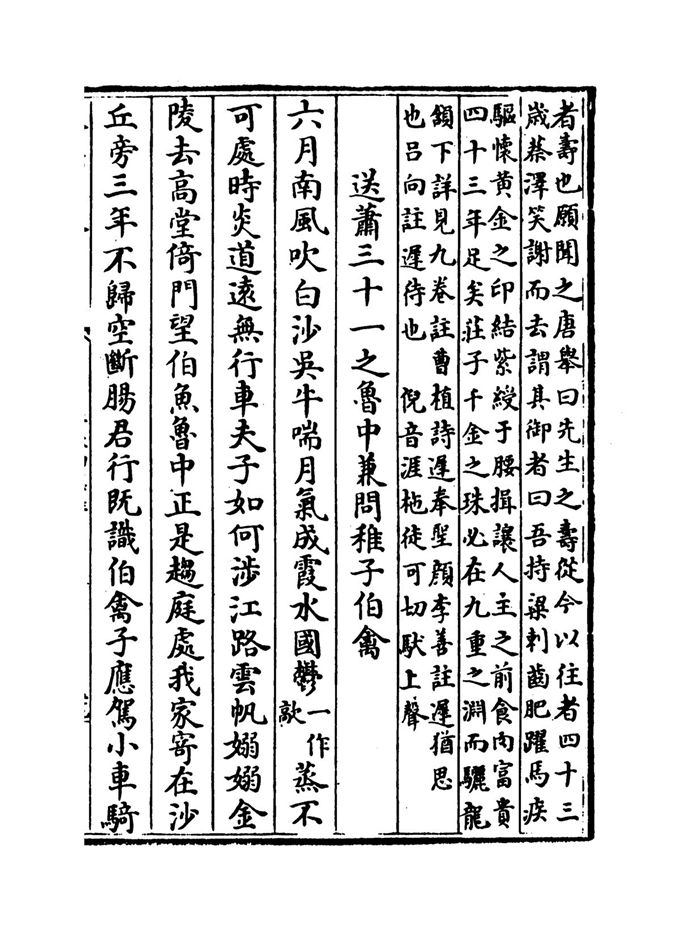 者壽也願聞之唐舉曰先生之壽從今以往者四十三
歲蔡澤笑謝而去謂其御者曰吾持粱刺齒肥躍馬疾
驅懷黃金之印結紫綬于腰揖讓人主之前食肉富貴
四十三年足矣莊子千金之珠必在九重之淵而驪龍
頷下詳見九卷註曹植詩遲奉聖顏李善註遲猶思
也呂向註遲待也 倪音涯柂徒可切駃上聲
送蕭三十一之魯中兼問稚子伯禽
六月南風吹白沙吳牛喘月氣成霞水國鬱一作歊蒸不
可處時炎道遠無行車夫子如何涉江路雲帆嫋嫋金
陵去高堂倚門望伯魚魯中正是趨庭處我家寄在沙
丘旁三年不歸空斷腸君行既識伯禽子應駕小車騎